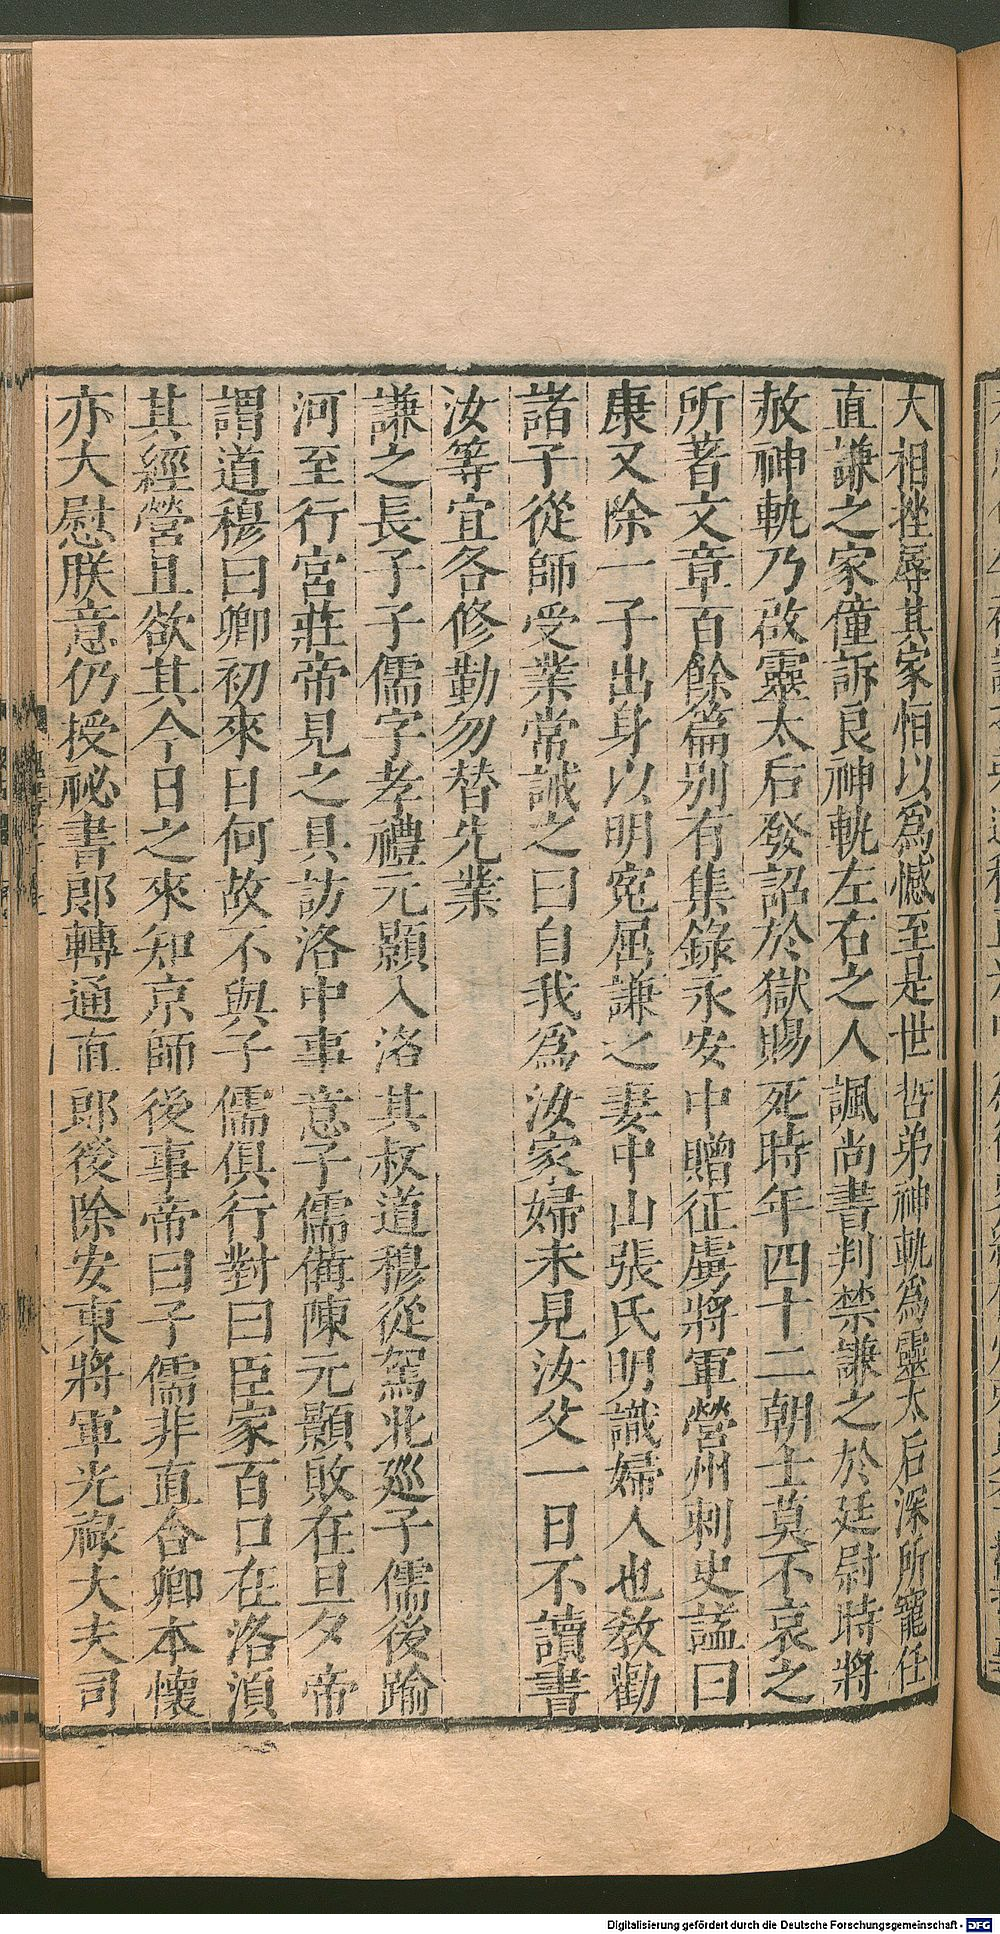 大相挫辱其家恒以爲憾至是世哲弟神軌爲靈太后深所寵任
直謙之家僮訴良神軌左右之人諷尚書判禁謙之於廷尉時將
赦神軌乃啟靈太后發詔於獄賜死時年四十二朝士莫不哀之
所著文章百餘篇別有集錄永安中贈征虜將軍營州刺史諡曰
康又除一子出身以明寃屈謙之妻中山張氏明識婦人也教勸
諸子從師受業常誡之曰自我爲汝家婦未見汝父一日不讀書
汝等宜各修勤勿替先業
謙之長子子儒字孝禮元顥入洛其叔道穆從駕北廵子儒後踰
河至行宮莊帝見之具訪洛中事意子儒備陳元顥敗在旦夕帝
謂道穆曰卿初來日何故不與子儒俱行對曰臣家百口在洛須
其經營且欲其今日之來知京師後事帝曰子儒非直合卿本懷
亦大慰朕意仍授祕書郎轉通直郎後除安東將軍光祿大夫司
Digitalisierung gefördert durch die Deutsche Forschungsgemeinschaft - DFG